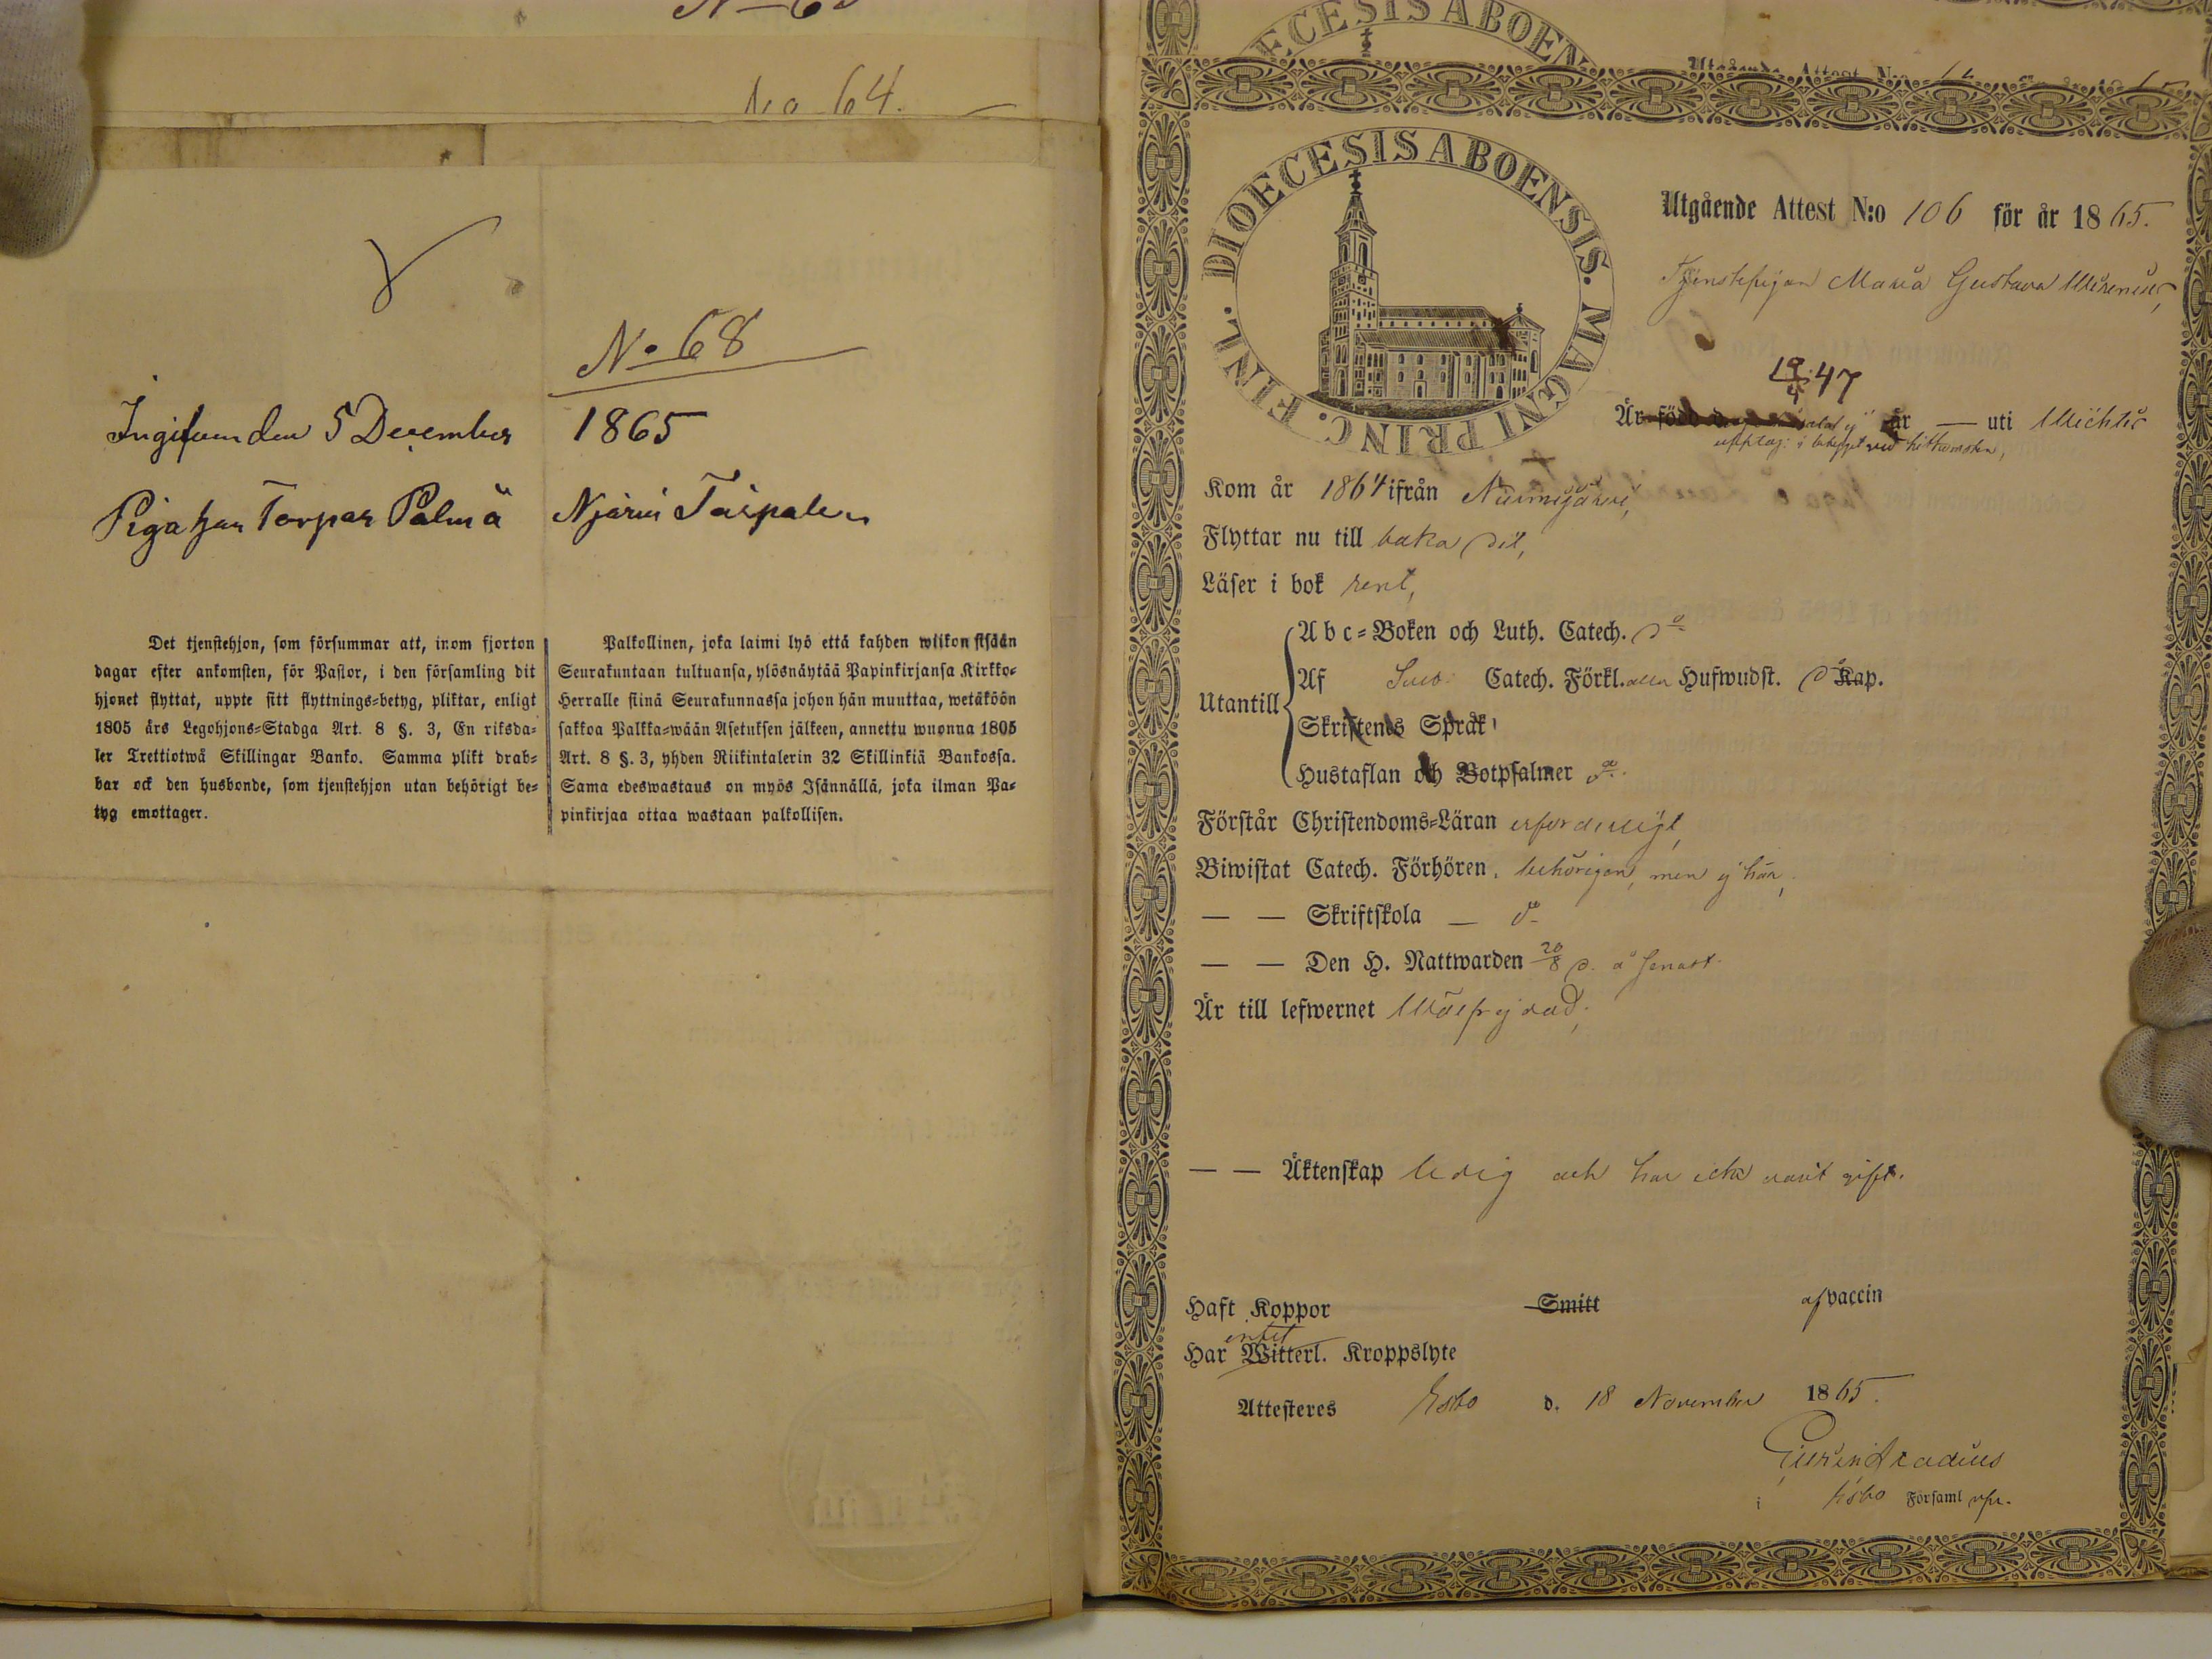 No 64.
No 68
Ingifven den 5 December 1865
Piga hos Torpar Palmä Njärvi Taipale
Det tjenstehjon, som försummar att, inom fjorton
dagar efter ankomsten, för Pastor, i den församling dit
hjonet flyttat, uppte sitt flyttnings=betyg, pliktar, enligt
1805 års Legohjons=Stadga Art. 8 §. 3, En riksda=
ler Trettiotwå Skillingar Banko. Samma plikt drab=
bar ock den husbonde, som tjenstehjon utan behörigt be=
tyg emottager.
Palkollinen, joka laimi lyö että kahden wiikon sisään
Seurakuntaan tultuansa, ylösnäytää Papinkirjansa Kirkko=
Herralle siinä Seurakunnassa johon hän muuttaa, wetäköön
sakkoa Palkka=wään Asetuksen jälkeen, annettu wuonna 1805
Art. 8 §. 3, yhden Riikintalerin 32 Skillinkiä Bankossa.
Sama edeswastaus on myös Isännällä, joka ilman Pa=
pinkirjaa ottaa wastaan palkollisen.
DIOECESIS ABOENSIS. MAGNI PRINC. FINL.
Utgående Attest N:o 106 för år 1865.
Tjenstepigan Maria Gustava
19/4 47
Är född år — uti
upptag: i betyget vid hitkomsten,
Kom år 1864 ifrån Nurmijärvi,
Flyttar nu till baka dit,
Läser i bok rent,
Utantill
Abc=Boken och Luth. Catech. do
Af Sveb. Catech. Förkl. alla Hufwudst. Kap.
Skriftenes Språk
Hustaflan och Botpsalmer do.
Förstår Christendoms=Läran erforderligt,
Biwistat Catech. Förhören, behörigen, men ej här,
— — Skriftskola — do
— — Den H. Nattwarden 20/8 d. å senast.
Är till lefwernet
— — Äktenskap ledig och har icke varit gift.
Haft Koppor Smitt af vaccin
Har Witterl. intet Kroppslyte
Attesteres Esbo d. 18 November 1865.
i Esbo Församl